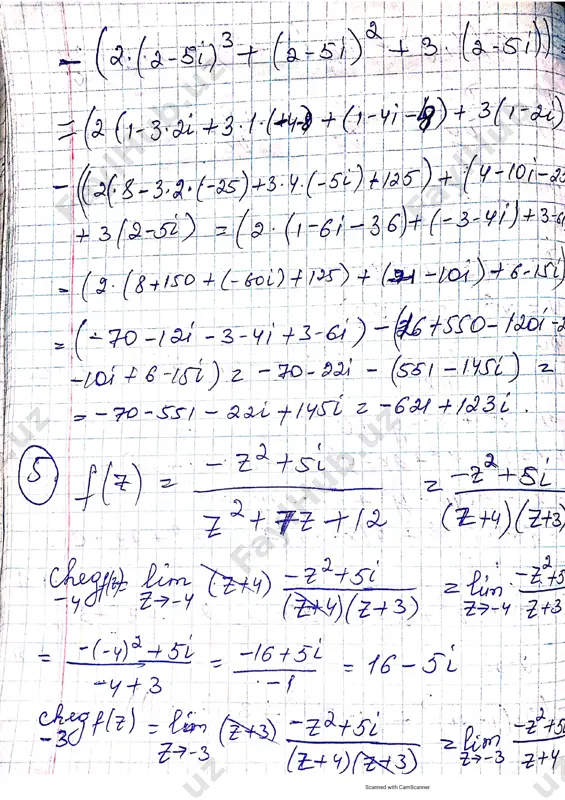 - (2·(2-5i)^3 + (2-5i)^2 + 3·(2-5i)) =
= (2(1-3·2i+3·1·(-4)) + (1-4i-4) + 3(1-2i)
- ((2(8-3·2·(-25)+3·4·(-5i)+125) + (4-10i-25
+ 3(2-5i) = (2·(1-6i-36)+(-3-4i)+3-6i
= (2·(8+150+(-60i)+125) + (-21-10i)+6-15i)
= (-70-12i-3-4i+3-6i) - (16+550-120i-2
-10i+6-15i) = -70-22i - (551-145i) =
= -70-551-22i+145i = -621+123i.
5. f(z) = (-z^2+5i)/(z^2+7z+12) = (-z^2+5i)/((z+4)(z+3)
cheg_{-4} f(z) = lim_{z→-4} (z+4) (-z^2+5i)/((z+4)(z+3)) = lim_{z→-4} (-z^2+5/(z+3
= (-(-4)^2+5i)/(-4+3) = (-16+5i)/(-1) = 16-5i
cheg_{-3} f(z) = lim_{z→-3} (z+3) (-z^2+5i)/((z+4)(z+3)) = lim_{z→-3} (-z^2+5i/(z+4
Scanned with CamScanner
FayHub.uz